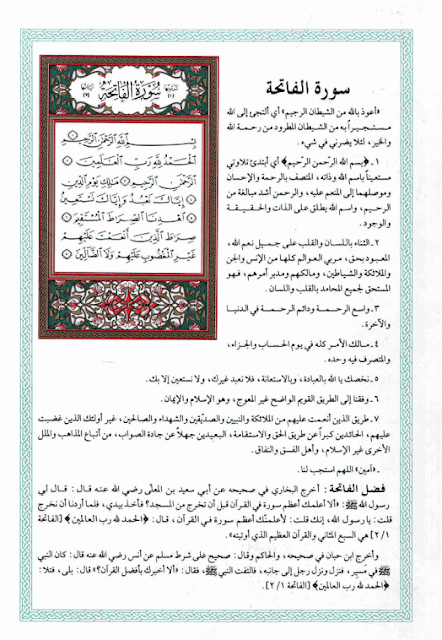 سورة الفاتحة
«أعوذ بالله من الشيطان الرجيم» أي ألتجئ إلى الله
مستجيراً به من الشيطان المطرود من رحمة الله
والخير، لئلا يضرني في شيء.
١ ـ ﴿بسم الله الرحمن الرحيم﴾ أي أبتدئ تلاوتي
مستعيناً باسم الله وذاته، المتصف بالرحمة والإحسان
وموصلهما إلى المنعم عليه، والرحمن أشد مبالغة من
الرحيم، واسم الله يطلق على الذات والحقيقة
والوجود.
٢ ـ الثناء باللسان والقلب على جميل نعم الله،
المعبود بحق، مربي العوالم كلها من الإنس والجن
والملائكة والشياطين، ومالكهم ومدبر أمرهم، فهو
المستحق لجميع المحامد بالقلب واللسان.
٣ ـ واسع الرحمة ودائم الرحمة في الدنيا
والآخرة.
٤ ـ مالك الأمر كله في يوم الحساب والجزاء،
والمتصرف فيه وحده.
٥ ـ نخصك يا الله بالعبادة، وبالاستعانة، فلا نعبد غيرك، ولا نستعين إلا بك.
٦ ـ وفقنا إلى الطريق القويم الواضح غير المعوج، وهو الإسلام والإيمان.
٧ ـ طريق الذين أنعمت عليهم من الملائكة والنبيين والصدّيقين والشهداء والصالحين، غير أولئك الذين غضبت
عليهم، الحائدين كبراً عن طريق الحق والاستقامة، البعيدين جهلاً عن جادة الصواب، من أتباع المذاهب والملل
الأخرى غير الإسلام، وأهل الفسق والنفاق.
ـ «آمين» اللهم استجب لنا.
فضل الفاتحة: أخرج البخاري في صحيحه عن أبي سعيد بن المعلّى رضي الله عنه قال: قال لي
رسول الله ﷺ: «ألا أعلمك أعظم سورة في القرآن قبل أن تخرج من المسجد؟ فأخذ بيدي، فلما أردنا أن نخرج
قلت: يا رسول الله، إنك قلت: لأعلمنّك أعظم سورة في القرآن، قال: ﴿الحمد لله رب العالمين﴾ [الفاتحة
٢/١] هي السبع المثاني والقرآن العظيم الذي أوتيته».
وأخرج ابن حبان في صحيحه، والحاكم وقال: صحيح على شرط مسلم عن أنس رضي الله عنه قال: كان النبي
ﷺ في مَسِير، فنزل ونزل رجل إلى جانبه، فالتفت النبي ﷺ، فقال: «ألا أخبرك بأفضل القرآن؟» قال: بلى، فتلا:
﴿الحمد لله رب العالمين﴾ [الفاتحة ٢/١].
سورة الفاتحة
بسم الله الرحمن الرحيم
الحمد لله رب العالمين
الرحمن الرحيم مالك يوم الدين
إياك نعبد وإياك نستعين
اهدنا الصراط المستقيم
صراط الذين أنعمت عليهم
غير المغضوب عليهم ولا الضالين